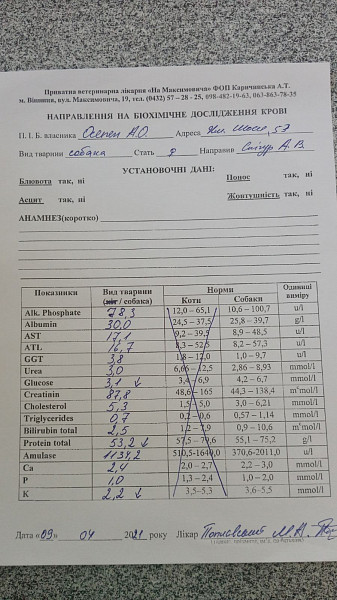 Приватна ветеринарна лікарня «На Максимовича» ФОП Каричинська А.Т.
м. Вінниця, вул. Максимовича, 19, тел. (0432) 57 – 28 - 25, 098-482-19-63, 063-863-78-35
НАПРАВЛЕННЯ НА БІОХІМІЧНЕ ДОСЛІДЖЕННЯ КРОВІ
П. І. Б. власника А.О. Адреса 57
Вид тварини собака Стать Направив А. В.
УСТАНОВОЧНІ ДАНІ:
Блювота так, ні Понос так, ні
Асцит так, ні Жовтушність так, ні
АНАМНЕЗ(коротко)
Показники Вид тварини (кіт / собака) Норми Одиниці виміру
Коти Собаки
Alk. Phosphate 78,3 12,0 – 65,1 10,6 – 100,7 u/l
Albumin 30,0 24,5 – 37,5 25,8 – 39,7 g/l
AST 17,1 9,2 – 39,5 8,9 - 48,5 u/l
ATL 16,7 8,3 – 52,5 8,2 – 57,3 u/l
GGT 3,8 1,8 – 12,0 1,0 – 9,7 u/l
Urea 3,0 6,66 – 12,5 2,86 – 8,93 mmol/l
Glucose 3,1 ↓ 3,4 – 6,9 4,2 – 6,7 mmol/l
Creatinin 87,8 48,6 – 165 44,3 – 138,4 m°mol/l
Cholesterol 5,3 1,5 – 5,0 3,0 – 6,21 mmol/l
Triglycerides 0,7 0,2 – 0,6 0,57 – 1,14 mmol/l
Bilirubin total 2,5 1,2 – 7,9 0,9 – 10,6 m°mol/l
Protein total 53,2 ↓ 57,5 – 79,6 55,1 – 75,2 g/l
Amulase 1134,2 510,5-1649,0 370,6-2011,0 u/l
Ca 2,4 2,0 – 2,7 2,2 – 3,0 mmol/l
P 1,0 1,3 – 2,4 1,0 – 2,0 mmol/l
K 2,2 ↓ 3,5–5,3 3,6–5,5 mmol/l
Дата «09» 04 2021 року Лікар М.А.